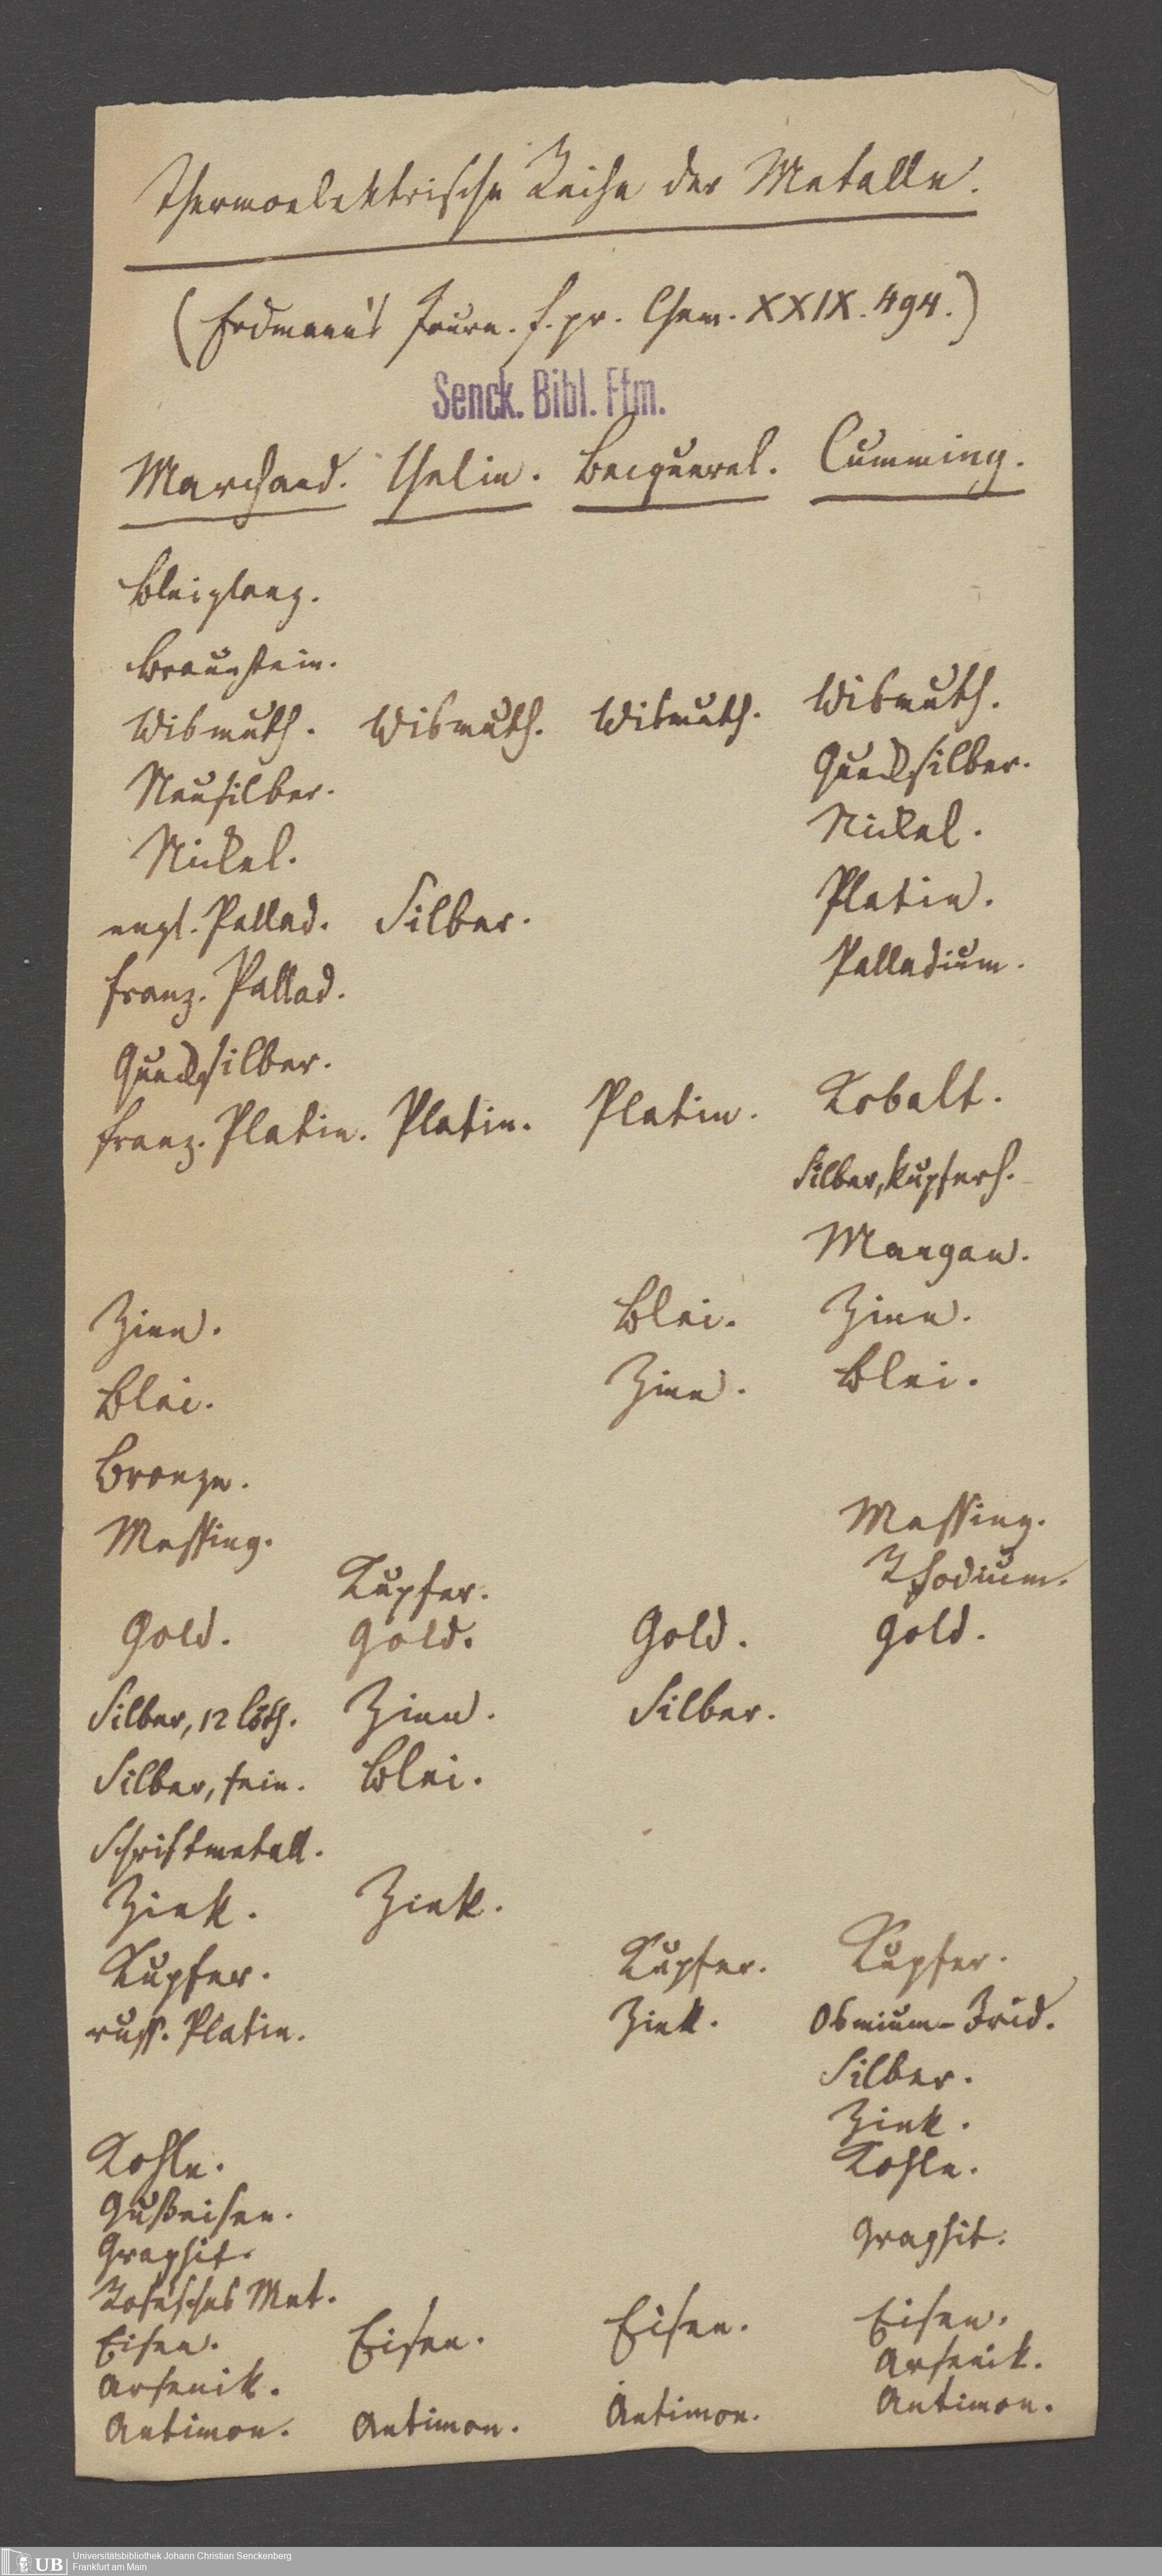 Thermoelektrische Reihe der Metalle.
(Erdmann's Journ. f. pr. Chem. XXIX. 494.)
Senck. Bibl. Ffm.
Marchand. Yelin. Becquerel. Cumming.
Bleiglanz.
Braunstein.
Wismuth. Wismuth. Wismuth. Wismuth.
Neusilber. Quecksilber.
Nickel. Nickel.
engl. Pallad. Silber. Platin.
franz. Pallad. Palladium.
Quecksilber.
franz. Platin. Platin. Platin. Kobalt.
Silber, kupferh.
Mangan.
Zinn. Blei. Zinn.
Blei. Zinn. Blei.
Bronze.
Messing. Messing.
Kupfer. Rhodium.
Gold. Gold. Gold. Gold.
Silber, 12 löth. Zinn. Silber.
Silber, fein. Blei.
Schriftmetall.
Zink. Zink.
Kupfer. Kupfer. Kupfer.
russ. Platin. Zink. Osmium-Irid.
Silber.
Zink.
Kohle. Kohle.
Gußeisen.
Graphit. Graphit.
Rosesches Met.
Eisen. Eisen. Eisen. Eisen.
Arsenik. Arsenik.
Antimon. Antimon. Antimon. Antimon.
UB Universitätsbibliothek Johann Christian Senckenberg
Frankfurt am Main